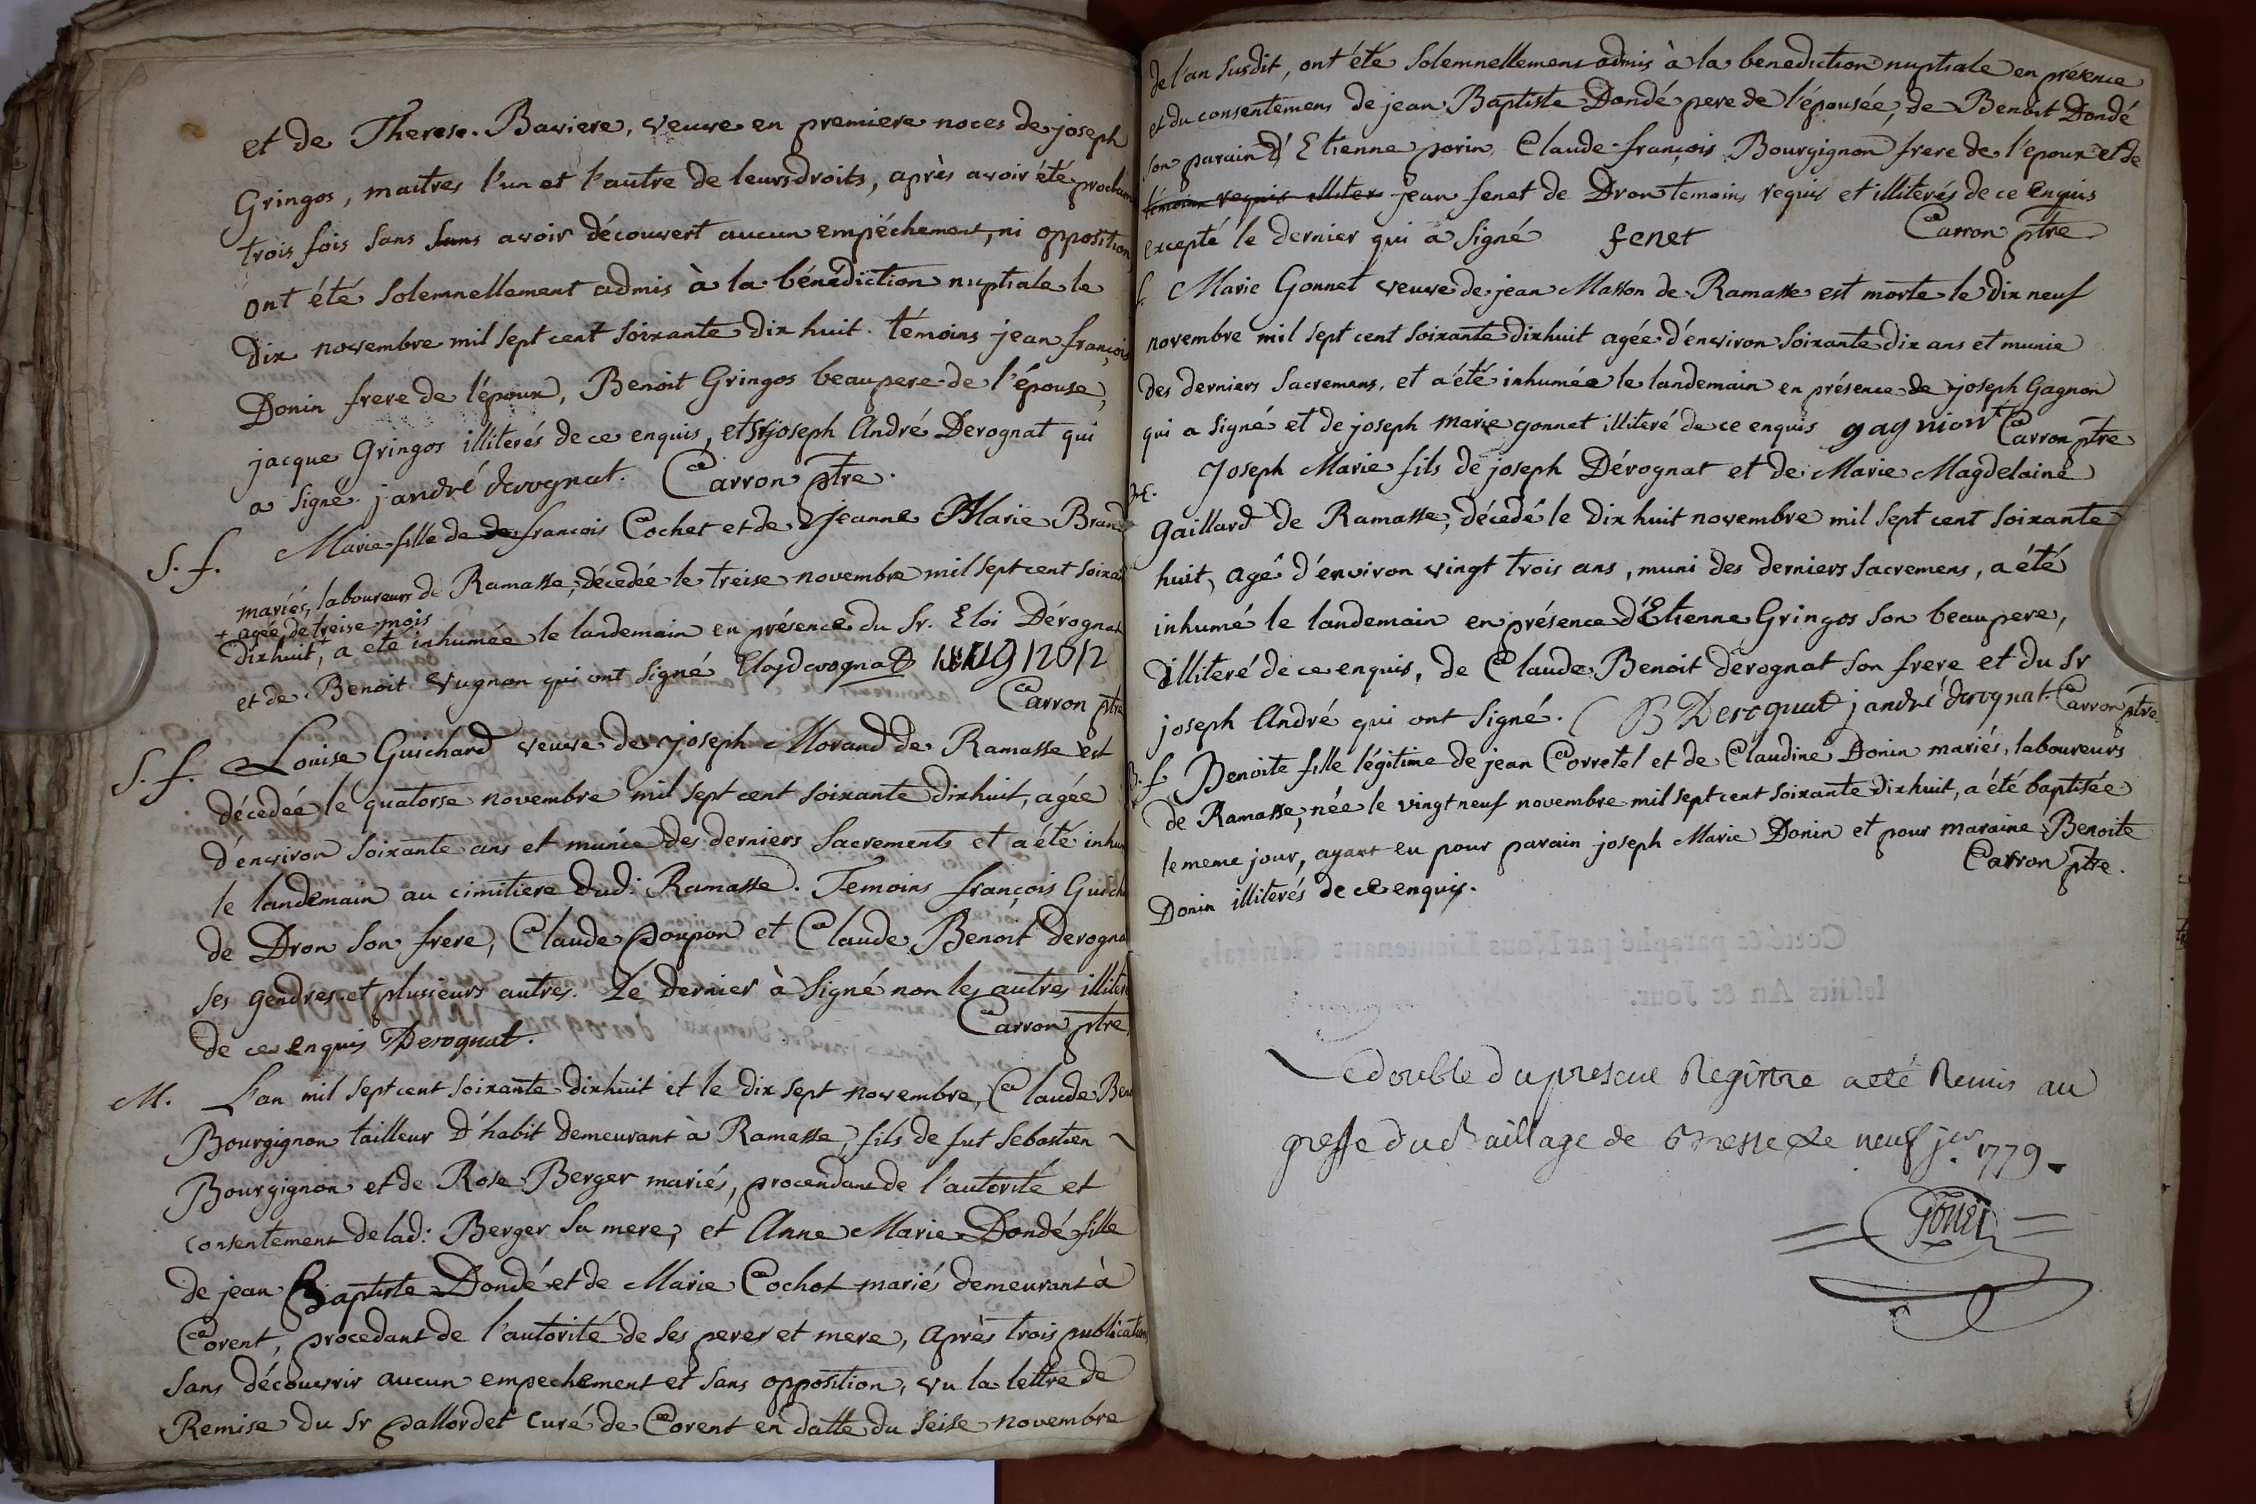 et de Therese Baviere, veuve en premiere noces de joseph
Gringos, maitres l'un et l'autre de leurs droits, après avoir été proclamé
trois fois sans sans avoir découvert aucun empéchement, ni opposition
ont été solemnellement admis à la bénédiction nuptiale le
dix novembre mil sept cent soixante dix huit. témoins jean françois
Donin frere de l'époux, Benoit Gringos beaupere de l'épouse,
jacque Gringos illiterés de ce enquis, et Sr joseph André Derognat qui
a signé. j andré derognat. Carron ptre.
S. f. Marie fille de de françois Cochet et de Jeanne Marie Brand
mariés, laboureurs de Ramasse, décedée le treise novembre mil sept cent soixante
+ agée de treise mois
dixhuit, + a eté inhumée le landemain en présence du Sr. Eloi Dérognat
et de Benoit vugnon qui ont signé Eloy derognat
Carron ptre
S. f. Louise Guichard veuve de joseph Morand de Ramasse est
décedée le quatorse novembre mil sept cent soixante dixhuit, agée
d'environ soixante ans et munie des derniers sacrements et a été inhum
le landemain au cimitiere dud: Ramasse. Temoins françois Guich
de Dron son frere, Claude Poupon et Claude Benoit derogna
ses gendres et plusieurs autres. Le dernier à signé non les autres illiter
de ce enquis Derognat. Carron ptre
M. L'an mil sept cent soixante dixhuit et le dix sept novembre, Claude Ben
Bourgignon tailleur d'habit demeurant à Ramasse, fils de fut Sebastien
Bourgignon et de Rose Berger mariés, procendant de l'autorité et
consentement de lad: Berger sa mere, et Anne Marie Dondé fille
de jean Baptiste Dondé et de Marie Cochet mariés demeurant à
Corent, procedant de l'autorité de ses peres et mere, après trois publications
sans découvrir aucun empechement et sans opposition, vu la lettre de
Remise du Sr Pallordet curé de Corent en datte du seise novembre
de l'an susdit, ont été solemnellement admis à la benediction nuptiale en présence
et du consentement de jean Baptiste Dondé pere de l'épousée, de Benoit Dondé
son parain d' Etienne porin, Claude françois Bourgignon frere de l'epoux et de
témoins requis illiter jean fenet de Dron temoins requis et illiterés de ce enquis
excepté le dernier qui a signé fenet Carron ptre
f. Marie Gonnet veuve de jean Masson de Ramasse est morte le dix neuf
novembre mil sept cent soixante dixhuit agée d'environ soixante dix ans et munie
des derniers sacremens, et a été inhumée le landemain en présence de joseph Gagnon
qui a signé et de joseph marie gonnet illiteré de ce enquis gagniont Carron ptre
Joseph Marie fils de joseph Dérognat et de Marie Magdelaine
gaillard de Ramasse, décedé le dix huit novembre mil sept cent soixante
huit, agé d'environ vingt trois ans, muni des derniers sacremens, a été
inhumé le landemain en présence d'Etienne Gringos son beaupere,
illiteré de ce enquis, de Claude Benoit dérognat son frere et du Sr
joseph André qui ont signé. C B Derognat j andré derognat. Carron ptre
B. f Benoite fille légitime de jean Corretel et de Claudine Donin mariés, laboureurs
de Ramasse, née le vingt neuf novembre mil sept cent soixante dixhuit, a été baptisée
le meme jour, ayant eu pour parain joseph Marie Donin et pour maraine Benoite
Donin illiterés de ce enquis. Carron ptre.
Le double du present Registre a eté Remis au
greffe du Bailliage de Bresse le neuf jer 1779.